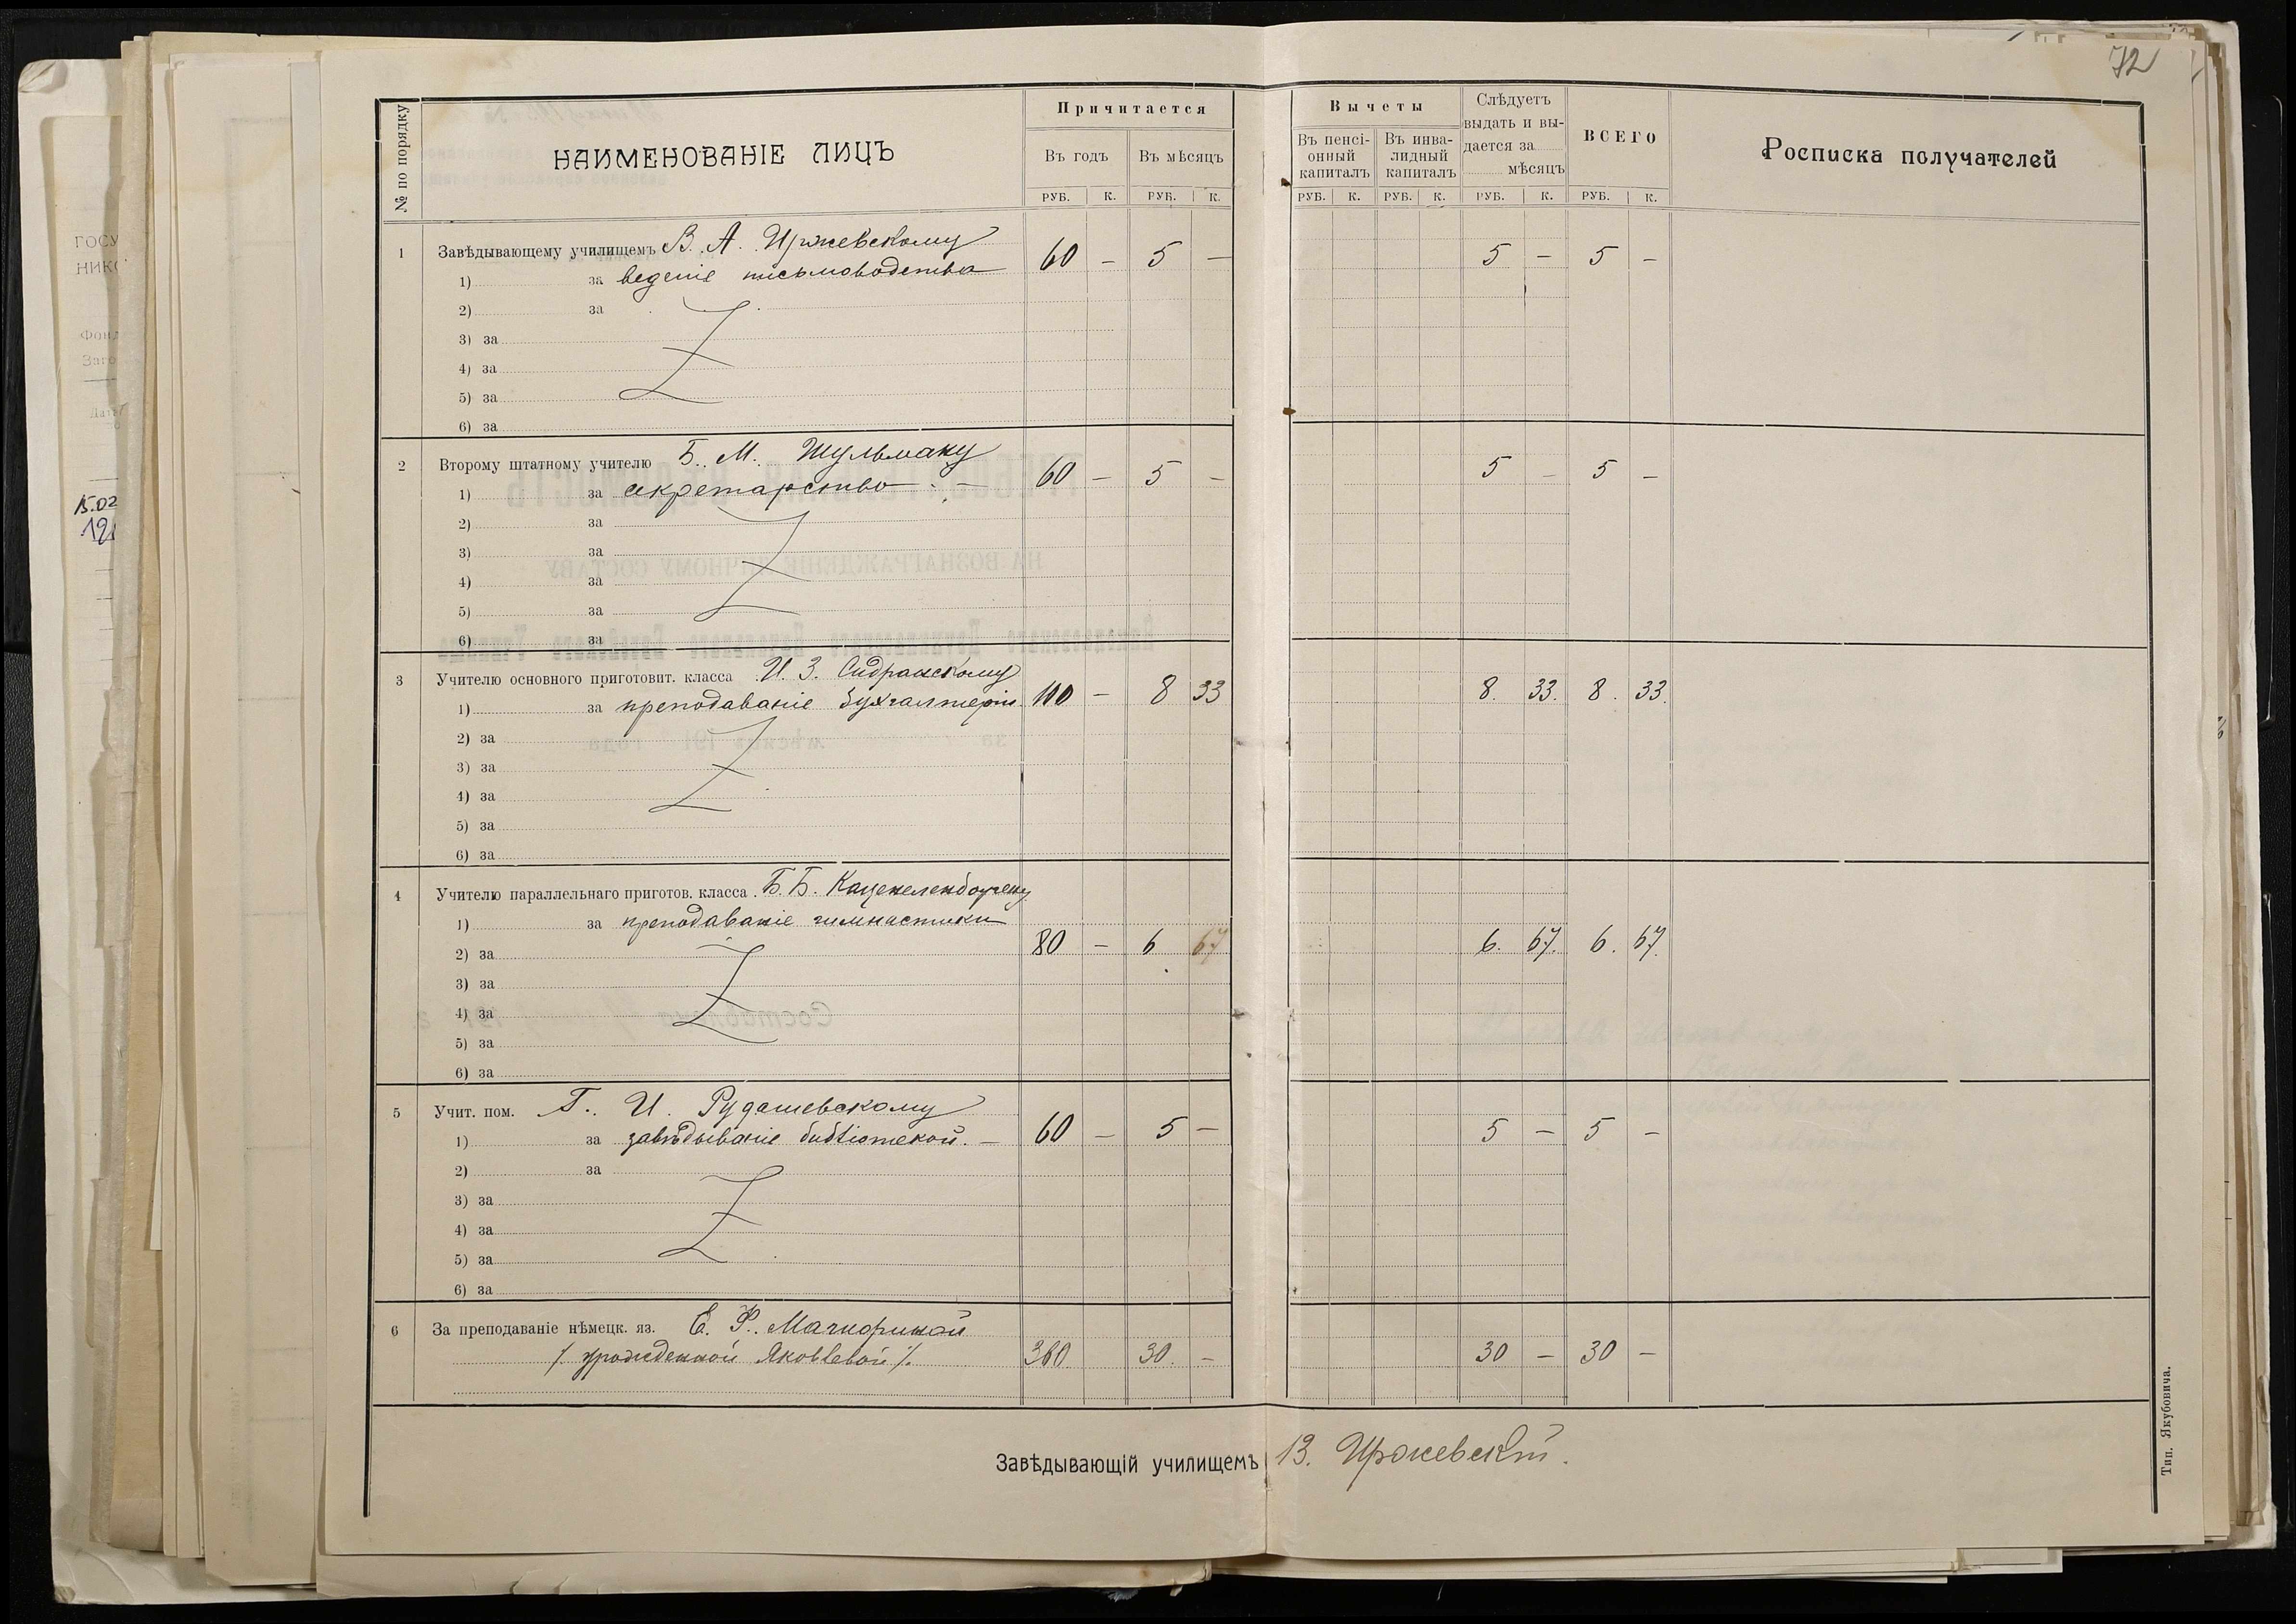 72
№ по порядку
НАИМЕНОВАНІЕ ЛИЦЪ
Причитается
Въ годъ
Въ мѣсяцъ
РУБ. К. РУБ. К.
Вычеты
Въ пенсі-
онный
капиталъ
Въ инва-
лидный
капиталъ
Слѣдуетъ
выдать и вы-
дается за
мѣсяцъ
ВСЕГО
Росписка получателей
РУБ. К. РУБ. К. РУБ. К. РУБ. К.
1 Завѣдывающему училищемъ В. А. Иржевскому
1) за веденіе письмоводства 60 — 5 — 5 — 5 —
2) за
3) за
4) за
5) за
6) за
2 Второму штатному учителю Б. М. Шульману
1) за секретарство — 60 — 5 — 5 — 5 —
2) за
3) за
4) за
5) за
6) за
3 Учителю основного приготовит. класса И. З. Сидранскому
1) за преподаваніе бухгалтеріи 100 — 8 33 8. 33. 8. 33.
2) за
3) за
4) за
5) за
6) за
4 Учителю параллельнаго приготов. класса Б. Б. Каценеленбогену
1) за преподаваніе гимнастики
2) за 80 — 6 67 6. 67. 6. 67.
3) за
4) за
5) за
6) за
5 Учит. пом. Г. И. Рудашевскому
1) за завѣдываніе библіотекой. — 60 — 5 — 5 — 5 —
2) за
3) за
4) за
5) за
6) за
6 За преподаваніе нѣмецк. яз. Е. Ф.
/. урожденной Яковлевой /. 360 30. — 30 — 30 —
Завѣдывающій училищемъ В. Иржевскій.
Тип. Якубовича.
ГОСУ
НИКО
Фонд
15.02